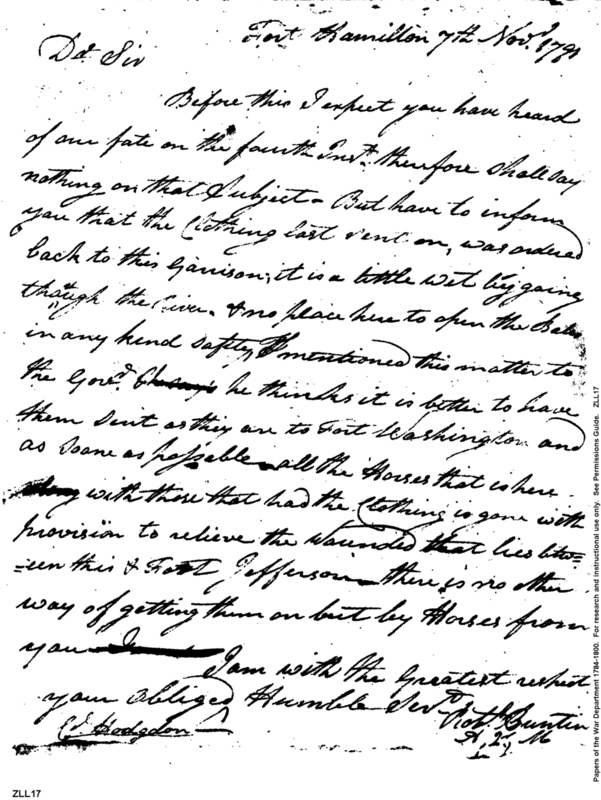 Fort Hamilton 7th Novr. 1791
Dr. Sir
Before this I expect you have heard
of our fate on the fourth Inst. therefore shall say
nothing on that Subject - But have to inform
you that the Clothing last sent on, was ordered
back to this Garrison, it is a little wet by going
though the River. & no place here to open the Bales
in any kind safety, I mentioned this matter to
the Govr. he thinks it is better to have
them sent as they are to Fort Washington and
as soane as possable - all the Horses that is here
with those that had the Clothing is gone with
provision to relieve the wounded that lies betw=
=een this & Fort Jefferson - there is no other
way of getting them on but by Horses from
you
I am with the Greatest respect
your obliged Humble Servt.
Robt. Buntin
Hodgdon
ZLL17
Papers of the War Department 1784-1800. For research and instructional use only. See Permissions Guide. ZLL17